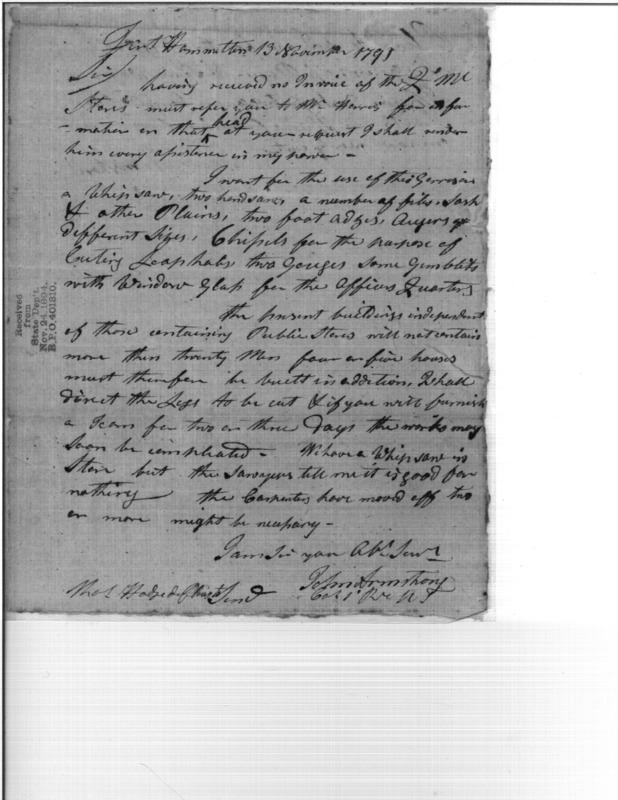 Fort Hammilton 13 November 1791
Sir
having received no Invoice of the Q. M.
Stores must refer you to Mr Harris for infor
-mation on that head at your request I shall render
him every assistance in my power -
I want for the use of this Garrison
a Whipsaw, two hand saws a number of files, Sash
& other Plains, two foot adzes, Augers of
different Sizes, Chissels for the purpose of
Cuting Loopholes two Gouges some Gimblits
with Window Glass for the Officers Quarters
the present buildings independent
of those containing Public Stores will not contain
more then twenty Men four or five houses
must therefore be built in addition, I shall
direct the Logs to be cut & if you will furnish
a Team for two or three days the works may
soon be compleated - We have a Whipsaw in
Store but the Sawyers tell me it is good for
nothing the Carpenters have moved off two
or more might be necessary -
I am Sir your Obt. Servt
John Armstrong
Capt 1st Regt U S
Saml Hodgdon
Received
from
State Dep't.
Nov. 24, 1894.
R.P.O. 401810.